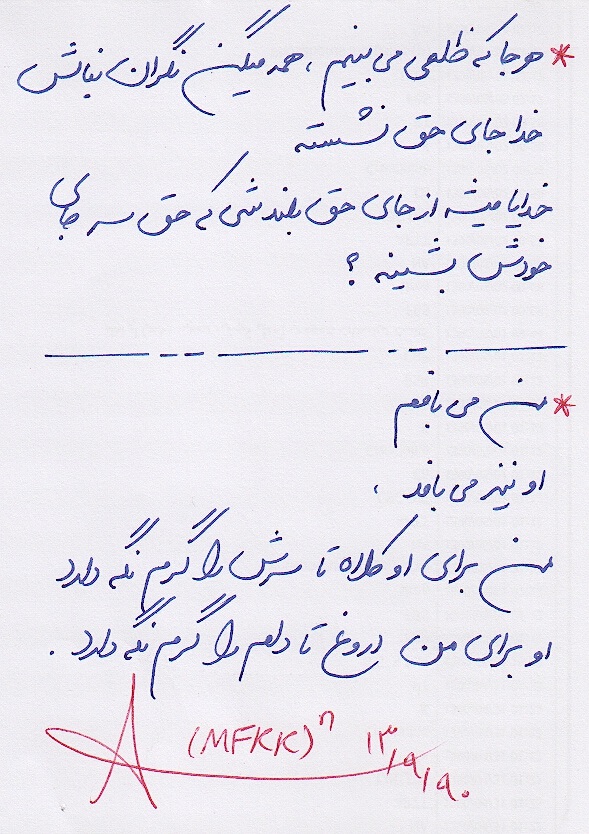 * هر جا که ظلمی می بینیم ، همه میگن نگران نباش
خدا جای حق نشسته
خدایا میشه از جای حق بلند شی که حق سر جای
خودش بشینه ؟
* من می بافم
او نیز می بافد ،
من برای او کلاه تا سرش را گرم نگه دارد
او برای من دروغ تا دلم را گرم نگه دارد .
(MFKK)ⁿ ۱۳/۹/۹۰